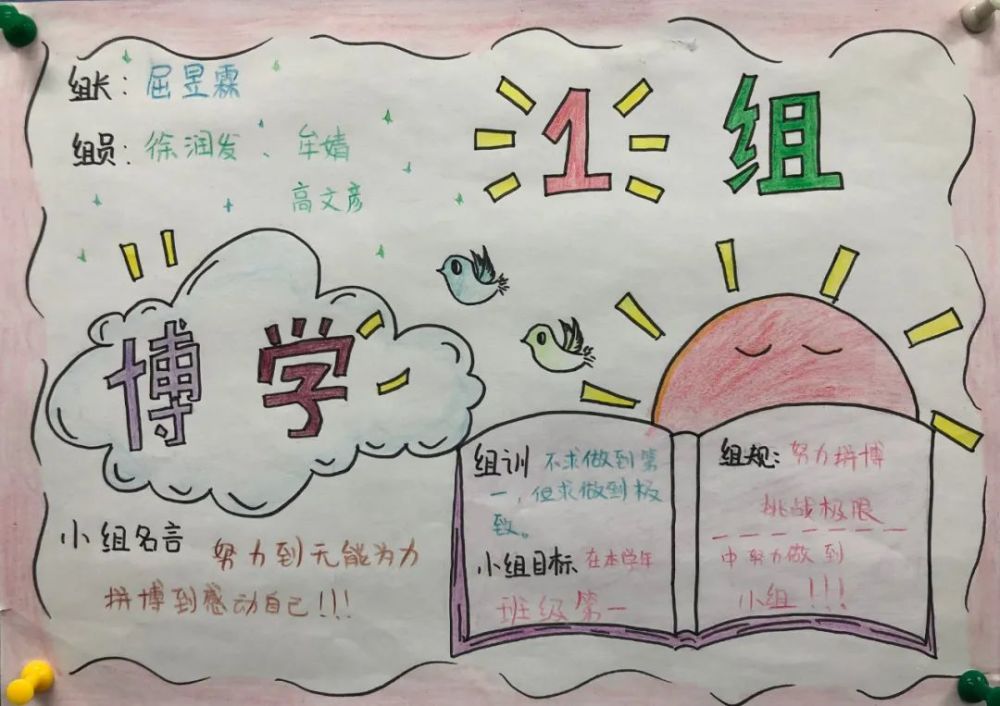 组长：屈昱霖
组员：徐润发、牟婧
高文彦
1组
博学
小组名言 努力到无能为力
拼博到感动自己!!!
组训 不求做到第
一，但求做到极
致。
小组目标、在本学年
班级第一
组规：努力拼博
挑战极限
中努力做到
小组!!!